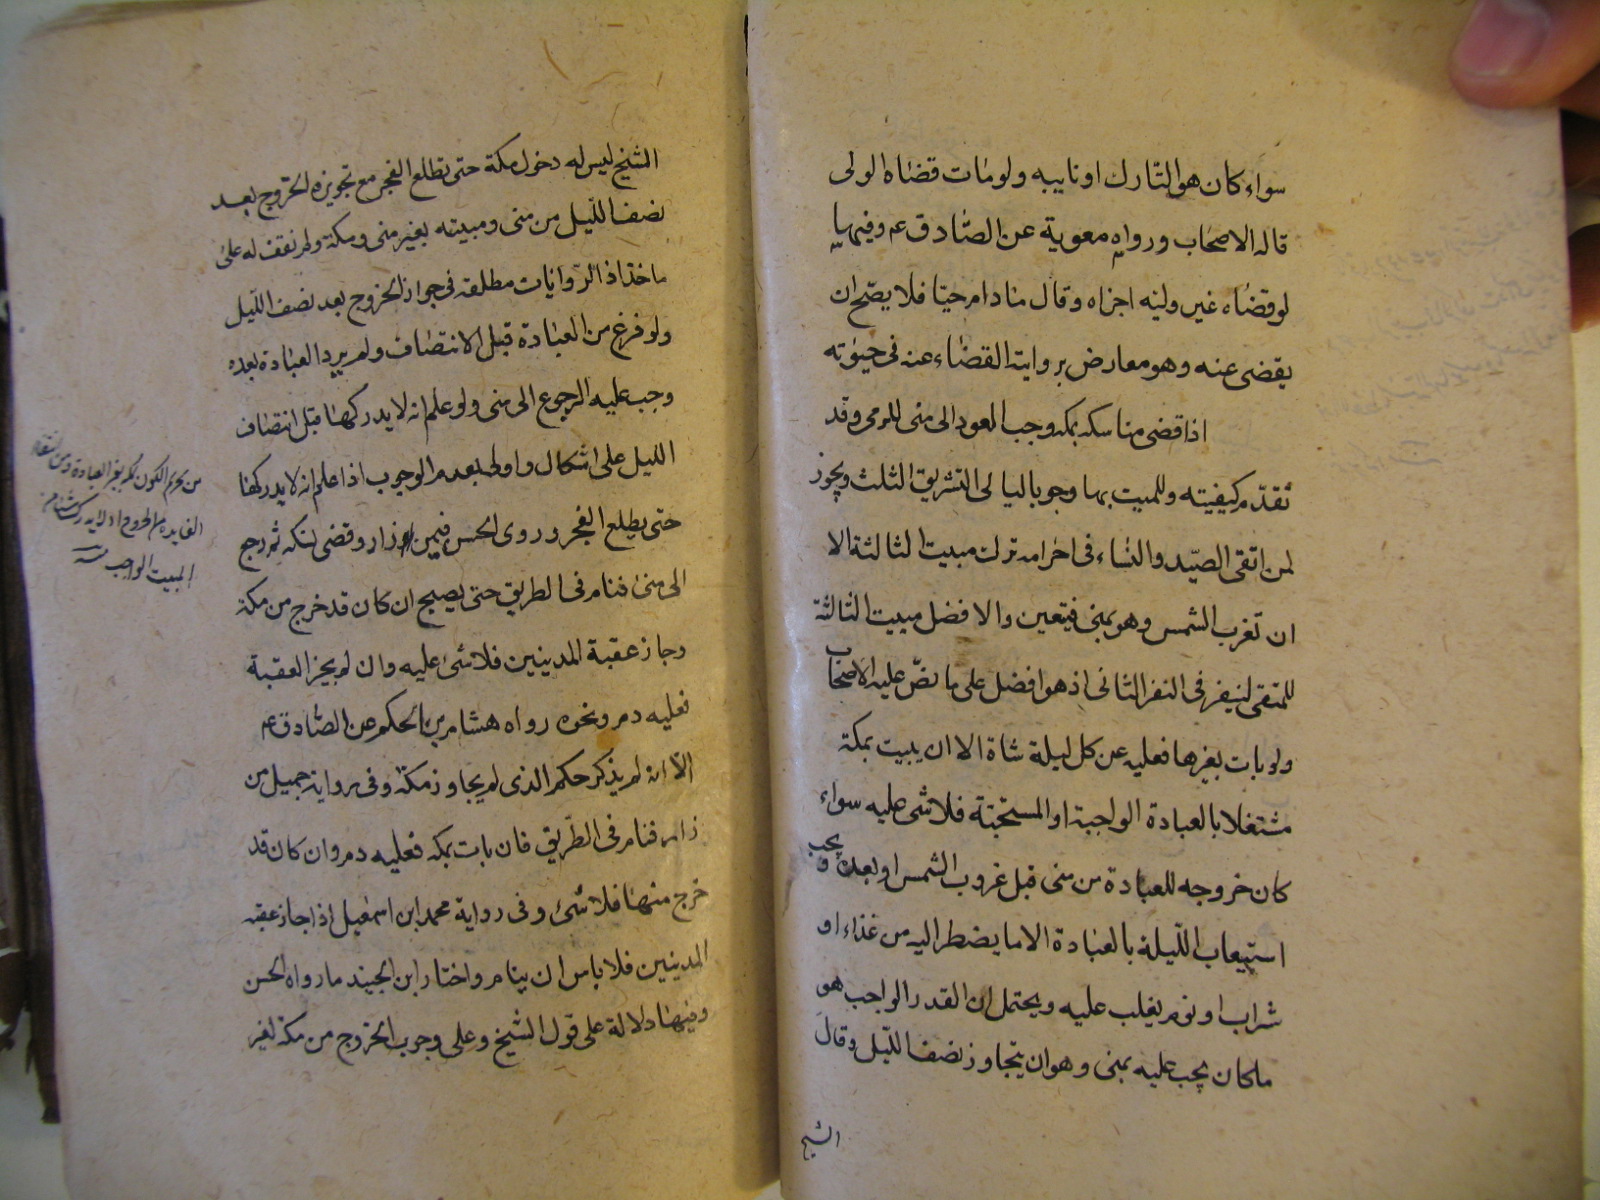 سواء كان هو التارك او نايبه ولو مات قضاه الولى
قاله الاصحاب ورواه معوية عن الصادق عم وفيها
لو قضاه غير وليه اجزاه وقال ما دام حيا فلا يصح ان
يقضى عنه وهو معارض برواية القضاء عنه فى حيوته
اذا قضى مناسكه بمكه وجب العود الى منى للرمى وقد
تقدم كيفيته وللمبيت بها وجوبا ليالى التشريق الثلث ويجوز
لمن اتقى الصيد والنساء فى احرامه ترك مبيت الثالثة الا
ان تغرب الشمس وهو بمنى فيتعين والافضل مبيت الثالثة
للمتقى لينفر فى النفر الثانى اذ هو افضل على ما نص عليه الاصحاب
ولو بات بغيرها فعليه عن كل ليلة شاة الا ان يبيت بمكة
مشتغلا بالعبادة الواجبة او المستحبة فلا شى عليه سواء
كان خروجه للعبادة من منى قبل غروب الشمس او بعده ويجب
استيعاب الليلة بالعبادة الا ما يضطر اليه من غذاء او
شراب او نوم يغلب عليه ويحتمل ان القدر الواجب هو
ما كان يجب عليه بمنى وهو ان يتجاوز نصف الليل وقال
الشيخ
الشيخ ليس له دخول مكة حتى يطلع الفجر مع تجويزه الخروج بعد
نصف الليل من منى ومبيته بغير منى ومكة ولم نقف له على
ماخذ اذ الروايات مطلقة فى جواز الخروج بعد نصف الليل
ولو فرغ من العبادة قبل الانتصاف ولم يرد العبادة بعده
وجب عليه الرجوع الى منى ولو علم انه لا يدركها قبل انتصاف
الليل على اشكال واولى بعدم الوجوب اذا علم انه لا يدركها
حتى يطلع الفجر وروى الحسن فيمن زار وقضى نسكه ثم رجع
الى منى فنام فى الطريق حتى يصبح ان كان قد خرج من مكة
وجاز عقبة المدينين فلا شئ عليه وان لم يجز العقبة
فعليه دم ونحوه رواه هشام بن الحكم عن الصادق عم
الا انه لم يذكر حكم الذى لم يجاوز مكة وفى رواية جميل من
زار فنام فى الطريق فان بات بمكه فعليه دم وان كان قد
خرج منها فلا شئ وفى رواية محمد ابن اسمعيل اذا جاز عقبه
المدينين فلا باس ان ينام واختار ابن الجنيد ما رواه الحسن
وفيها دلالة على قول الشيخ وعلى وجوب الخروج من مكة لغير
من تحريم الكون بمكه بغير العبادة ومن انتفاء
الفايده من الخروج اذ لا يدرك
المبيت الواجب